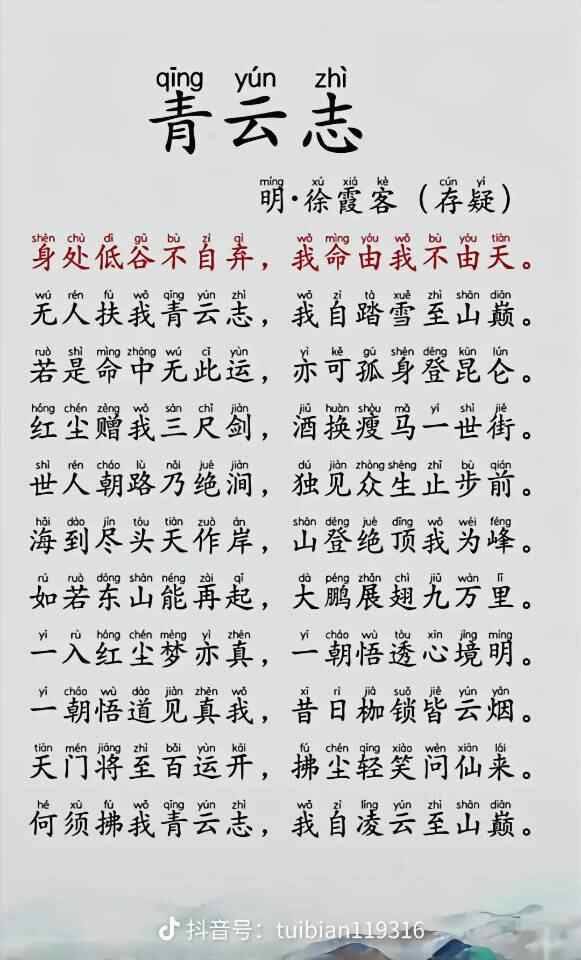 qīng yún zhì
青云志
míng xú xiá kè cún yí
明·徐霞客（存疑）
shēn chǔ dī gǔ bù zì qì wǒ mìng yóu wǒ bù yóu tiān
身处低谷不自弃，我命由我不由天。
wú rén fú wǒ qīng yún zhì wǒ zì tà xuě zhì shān diān
无人扶我青云志，我自踏雪至山巅。
ruò shì mìng zhōng wú cǐ yùn yì kě gū shēn dēng kūn lún
若是命中无此运，亦可孤身登昆仑。
hóng chén zèng wǒ sān chǐ jiàn jiǔ huàn shòu mǎ yī shì jiē
红尘赠我三尺剑，酒换瘦马一世街。
shì rén cháo lù nǎi jué jiàn dú jiàn zhòng shēng zhǐ bù qián
世人朝路乃绝涧，独见众生止步前。
hǎi dào jìn tóu tiān zuò àn shān dēng jué dǐng wǒ wéi fēng
海到尽头天作岸，山登绝顶我为峰。
rú ruò dōng shān néng zài qǐ dà péng zhǎn chì jiǔ wàn lǐ
如若东山能再起，大鹏展翅九万里。
yī rù hóng chén mèng yì zhēn yī cháo wù tòu xīn jìng míng
一入红尘梦亦真，一朝悟透心境明。
yī cháo wù dào jiàn zhēn wǒ xī rì jiā suǒ jiē yún yān
一朝悟道见真我，昔日枷锁皆云烟。
tiān mén jiāng zhì bǎi yùn kāi fú chén qīng xiào wèn xiān lái
天门将至百运开，拂尘轻笑问仙来。
hé xū fú wǒ qīng yún zhì wǒ zì líng yún zhì shān diān
何须拂我青云志，我自凌云至山巅。
抖音号：tuibian119316